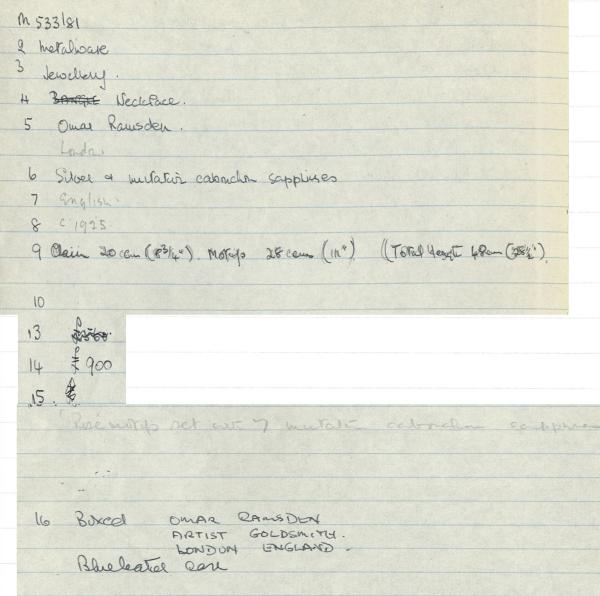 M 533/81
2 Metalware
3 Jewellery.
4 Necklace.
5 Omar Ramsden.
London
6 Silver & imitation cabochon sapphires
7 English.
8 C 1925
9 Chain 20 cms (8 3/4") Motifs 28 cms (11") (Total length 48cm
10
13
14 900
15.
Rose motifs set with 7 imitation cabochon sapphires
16 Boxed OMAR RAMSDEN
ARTIST GOLDSMITH.
LONDON ENGLAND.
Blue leather case